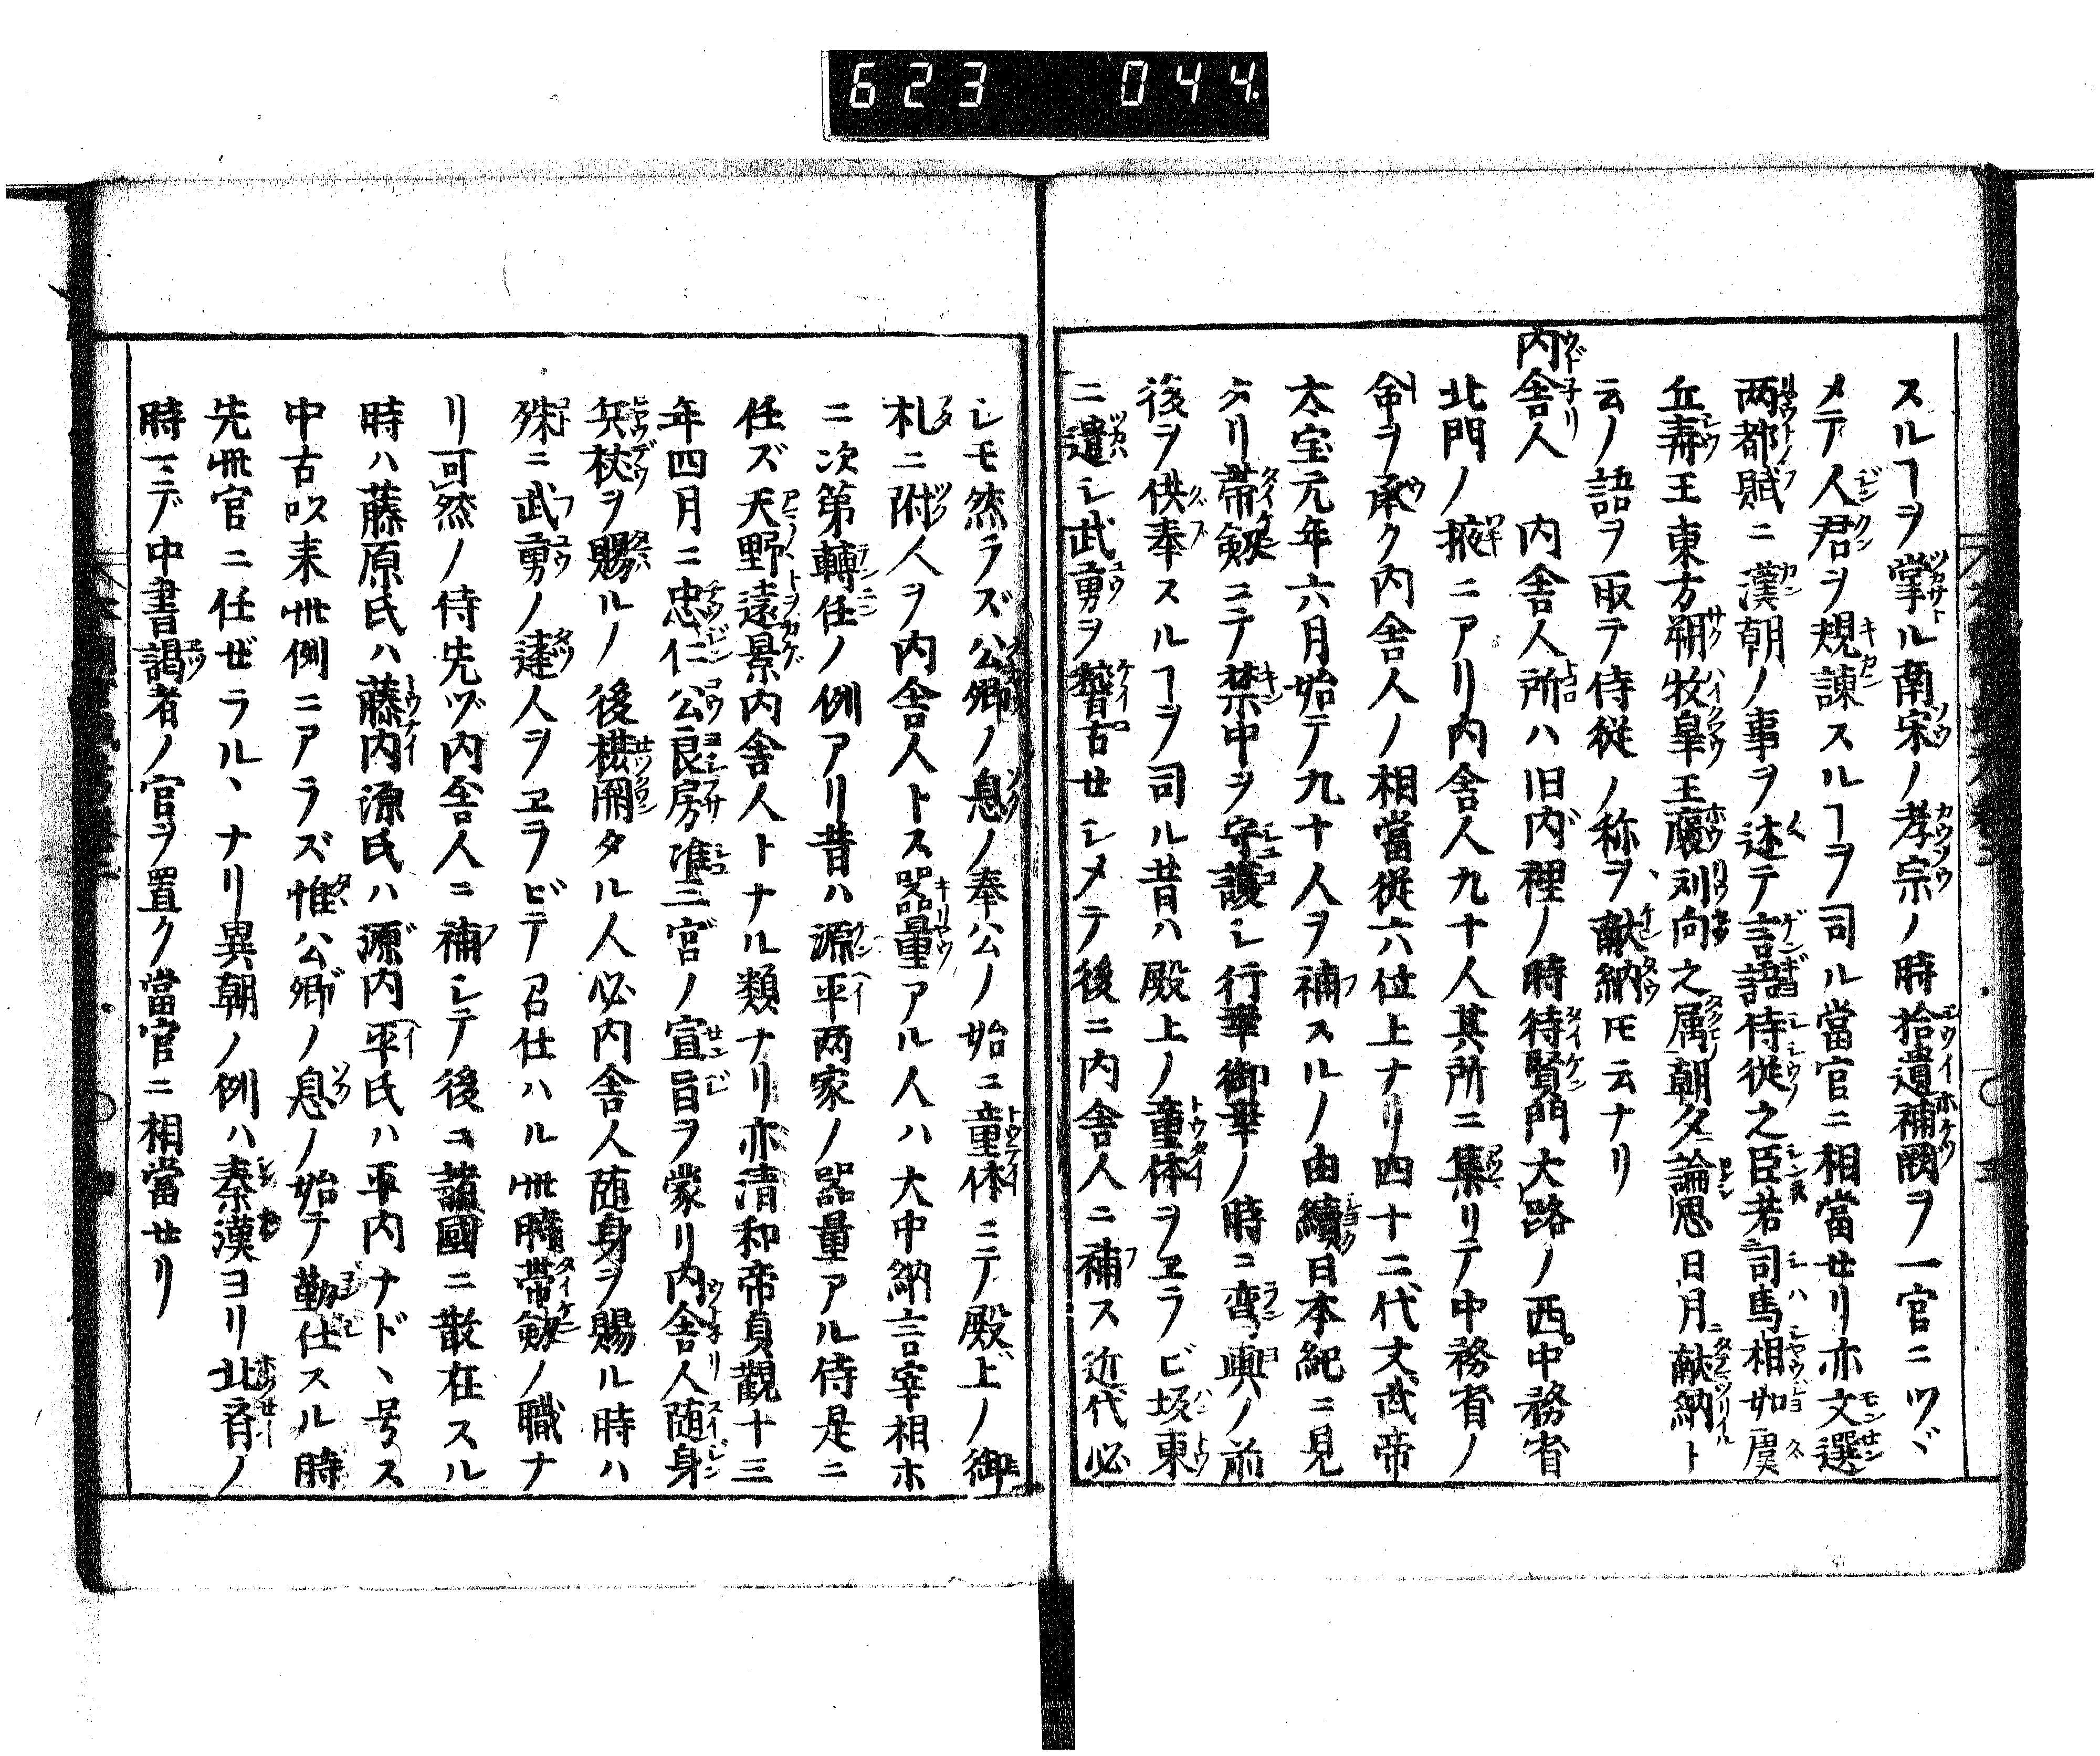 623 044.
スルヿヲ掌ル南宋ノ孝宗ノ時拾遺補闕ヲ一官ニツヾ
メテ人君ヲ規諫スルヿヲ司ル當官ニ相當セリ亦文選
兩都賦ニ漢朝ノ事ヲ述テ言語侍従之臣若司馬相如虞
丘壽王東方朔牧皐王襃劉向之属朝夕論思日月献納ト
云ノ語ヲ取テ侍従ノ称ヲ献納𪜈云ナリ
内舎人 内舎人所ハ旧内裡ノ時待賢門大路ノ西中務省
北門ノ掖ニアリ内舎人九十人其所ニ集リテ中務省ノ
命ヲ承ク内舎人ノ相當従六位上ナリ四十二代文武帝
太宝元年六月始テ九十人ヲ補スルノ由續日本紀ニ見
タリ帯劔ニテ禁中ヲ守護シ行幸御幸ノ時ニ鸞輿ノ前
後ヲ供奉スルヿヲ司ル昔ハ殿上ノ童体ヲヱラビ坂東
ニ遣シ武勇ヲ稽古セシメテ後ニ内舎人ニ補ス近代必
シモ然ラズ公卿ノ息ノ奉公ノ始ニ童体ニテ殿上ノ御
札ニ附人ヲ内舎人トス器量アル人ハ大中納言宰相ホ
ニ次第轉任ノ例アリ昔ハ源平两家ノ器量アル侍是ニ
任ズ天野遠景内舎人トナル類ナリ亦清和帝貞觀十三
年四月ニ忠仁公良房准三宮ノ宣旨ヲ蒙リ内舎人随身
兵杖ヲ賜ルノ後摂関タル人必内舎人随身ヲ賜ル時ハ
殊ニ武勇ノ達人ヲヱラビテ召仕ハル此時帯劔ノ職ナ
リ可然ノ侍先ヅ内舎人ニ補シテ後ニ諸國ニ散在スル
時ハ藤原氏ハ藤内源氏ハ源内平氏ハ平内ナドヽ号ス
中古以来此例ニアラズ惟公卿ノ息ノ始テ勤仕スル時
先此官ニ任ゼラルヽナリ異朝ノ例ハ秦漢ヨリ北斉ノ
時マデ中書謁者ノ官ヲ置ク當官ニ相當セリ